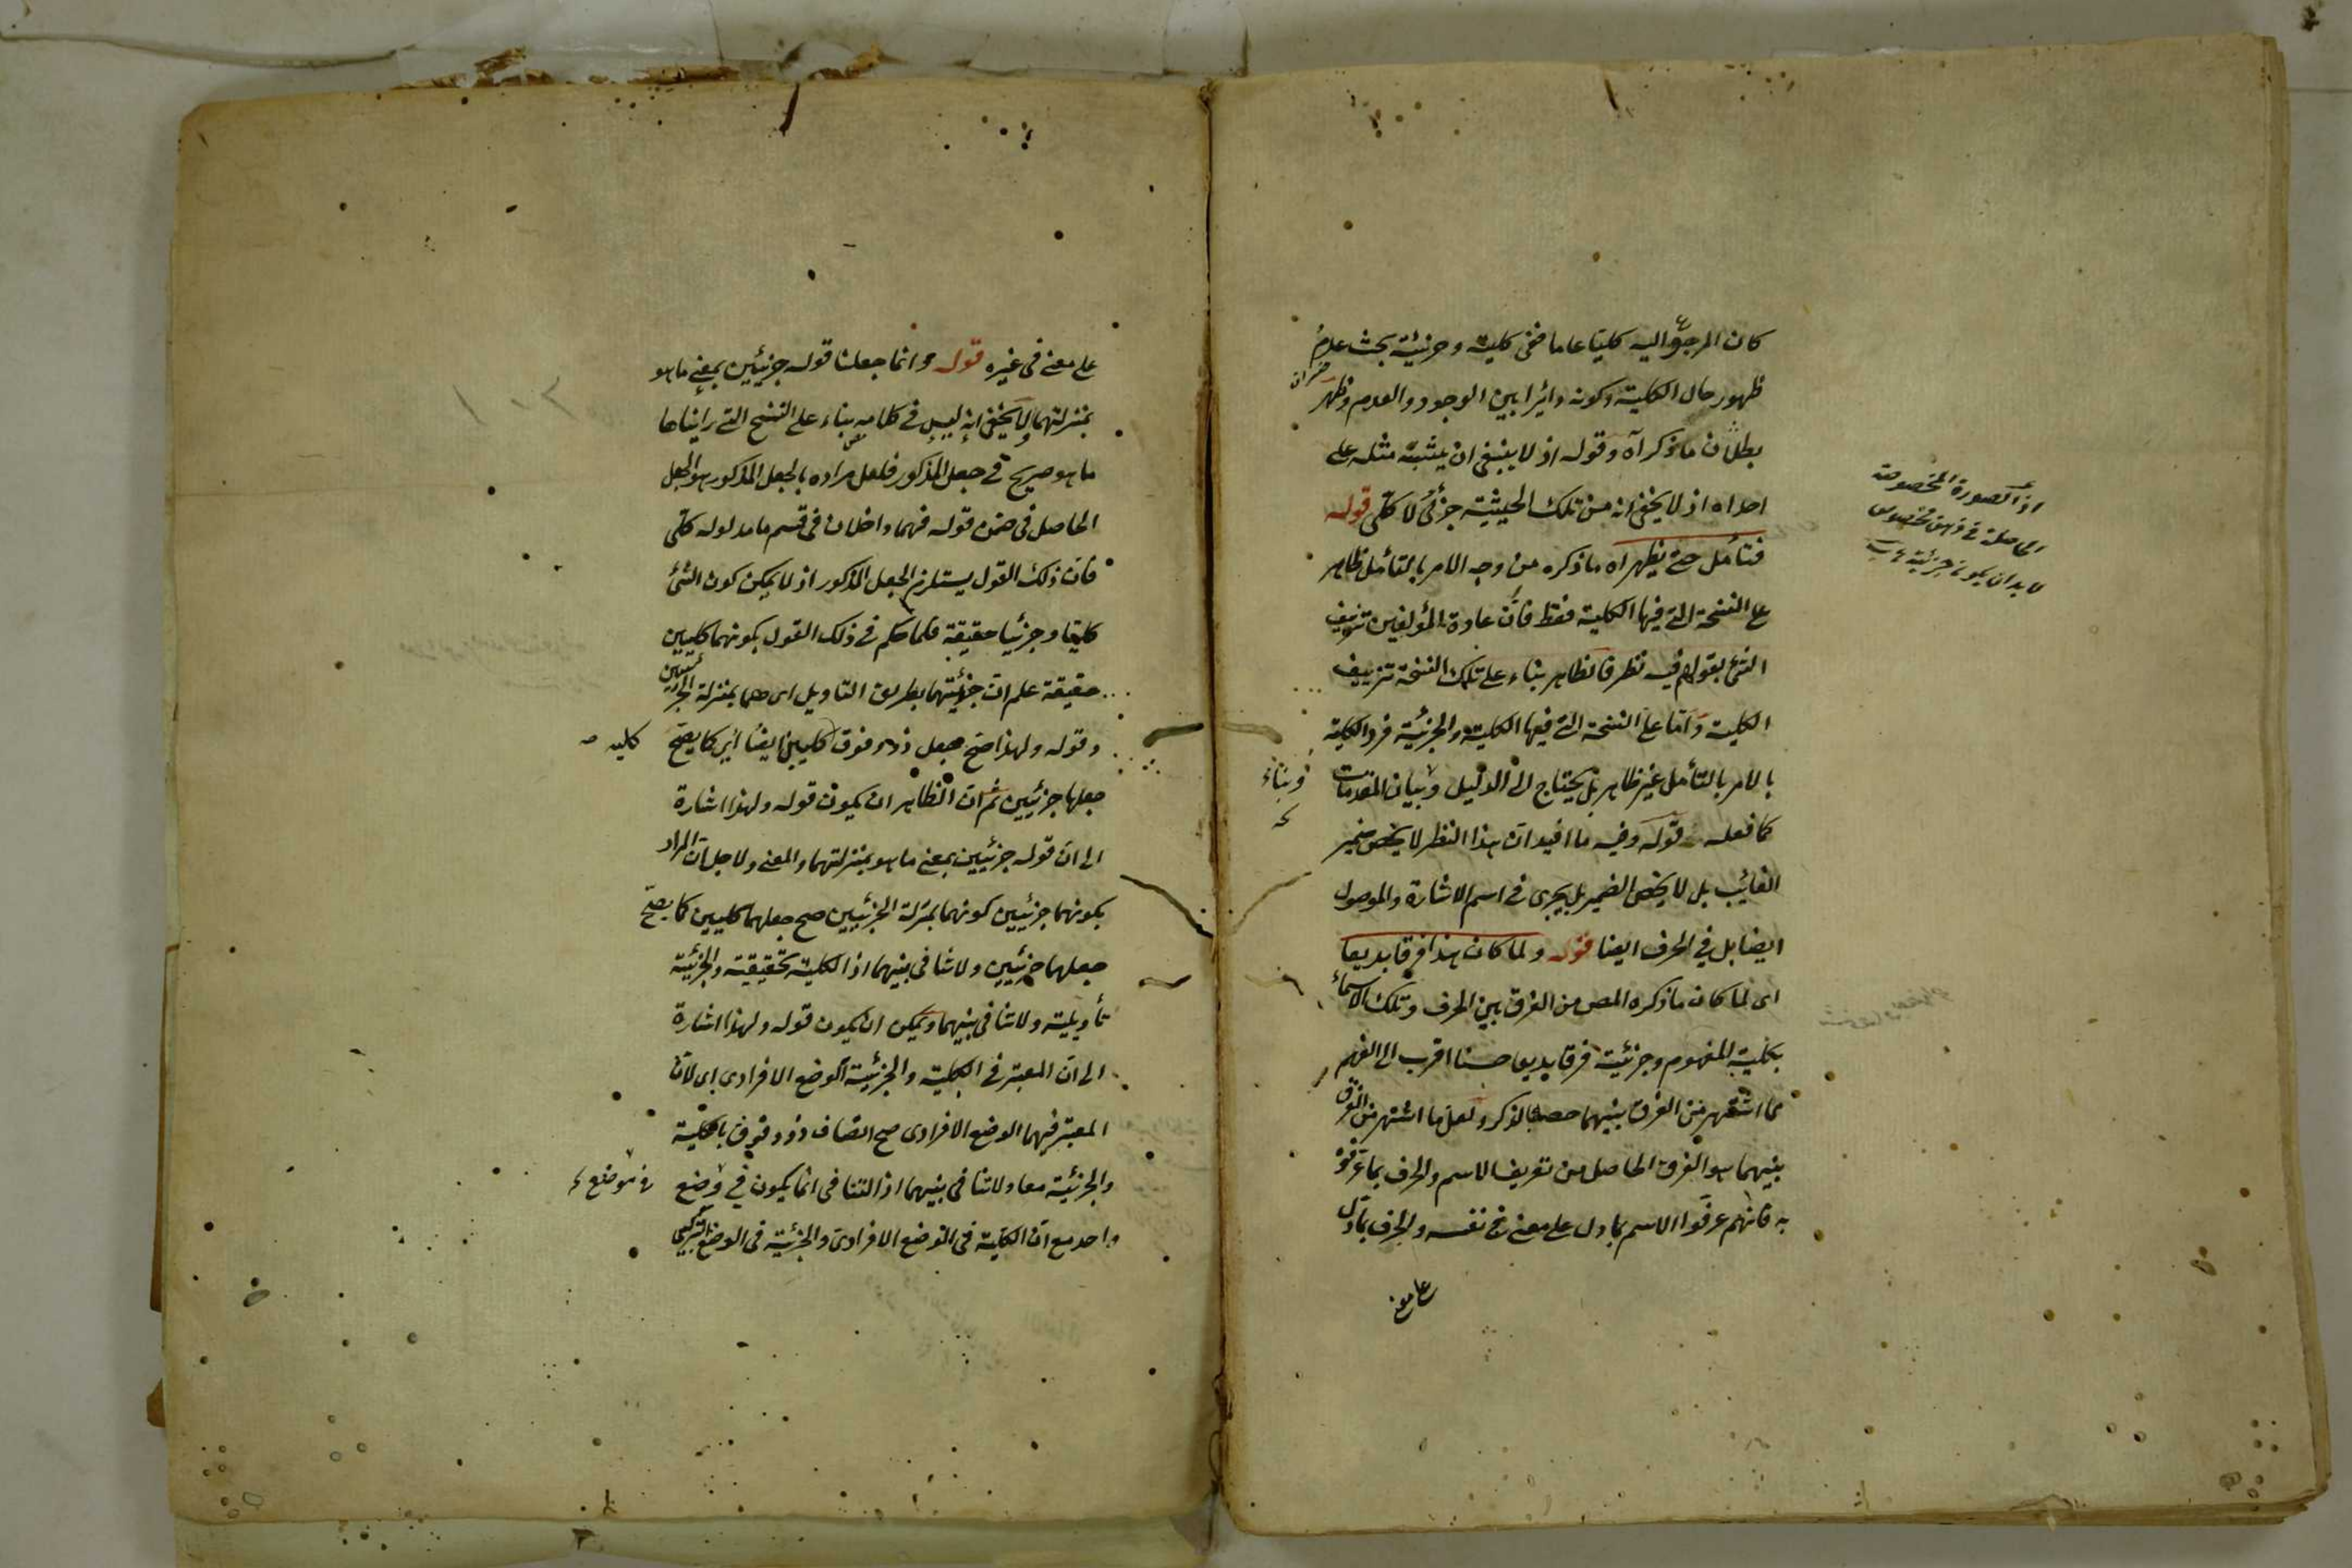 كان المرجوع اليه كليا عاما ففى كليته وجزئيته بحث عدم
ظهور حال الكلية وكونه دائرا بين الوجود والعدم وظهر
بطلان ما ذكر اه وقوله اذ لا ينبغى ان يشبّه مثله على
احد اه اذ لا يخفى انه من تلك الحيثية جزئى لا كلى قوله
فتأمل حتى يظهر اه ما ذكره من وجه الامر بالتأمل ظاهر
على النسخة التى فيها الكلية فقط فان عادة المؤلفين تزييف
الشئ بقولهم فيه نظر فالظاهر بناء على تلك النسخة تزييف
الكلية وامّا على النسخة التى فيها الكلية والجزئية فرد الكلية
بالامر بالتأمل غير ظاهر بل يحتاج الى الدليل وبيان المقدمات
كما فعله قوله وفيه ما افيد ان هذا النظر لا يخص ضمير
الغائب بل لا يخص الضمير بل يجرى فى اسم الاشارة والموصول
ايضا بل فى الحرف ايضا قوله ولما كان هذا فرقا بديعا
اى لما كان ما ذكره المص من الفرق بين الحرف وتلك الاسماء
بكلية المفهوم وجزئيته فرقا بديعا حسنا اقرب الى الفهم
مما اشتهر من الفرق بينهما خصه بالذكر ولعل ما اشتهر من الفرق
بينهما هو الفرق الحاصل من تعريف الاسم والحرف بما عرّفوه
به فانهم عرفوا الاسم بما دل على معنى فى نفسه والحرف بما دل
على معنى
اذ الصورة المخصوصة
الحاصلة فى ذهن مخصوص
لا بد ان يكون جزئية
وبناء
على معنى فى غيره قوله وانما جعلنا قوله جزئيين بمعنى ما هو
بمنزلتهما لا يخفى انه ليس فى كلامه بناء على النسخ التى رايناها
ما هو صريح فى جعل المذكور فلعل مراده بالجعل المذكور هو الجعل
الحاصل فى ضمن قوله فهما داخلان فى قسم ما مدلوله كلى
فان ذلك القول يستلزم الجعل المذكور اذ لا يمكن كون الشئ
كليا وجزئيا حقيقة فلما حكم فى ذلك القول بكونهما كليين
حقيقة علم ان جزئيتهما بطريق التاويل اى هما بمنزلة الجزئيين
وقوله ولهذا صح جعل ذو وفوق كليين ايضا اى كما يصح
جعلها جزئيين ثم ان الظاهر ان يكون قوله ولهذا اشارة
الى ان قوله جزئيين بمعنى ما هو بمنزلتهما والمعنى ولاجل ان المراد
بكونهما جزئيين كونهما بمنزلة الجزئيين صح جعلهما كليين كما يصح
جعلهما جزئيين ولا تنافى بينهما اذ الكلية تحقيقية والجزئية
تأويلية ولا تنافى بينهما ويمكن ان يكون قوله ولهذا اشارة
الى ان المعتبر فى الكلية والجزئية الوضع الافرادى اى لان
المعتبر فيهما الوضع الافرادى صح اتصاف ذو وفوق بالكلية
والجزئية معا ولا تنافى بينهما اذ التنافى انما يكون فى وضع
واحد مع ان الكلية فى الوضع الافرادى والجزئية فى الوضع التركيبى
كليه
فى موضع